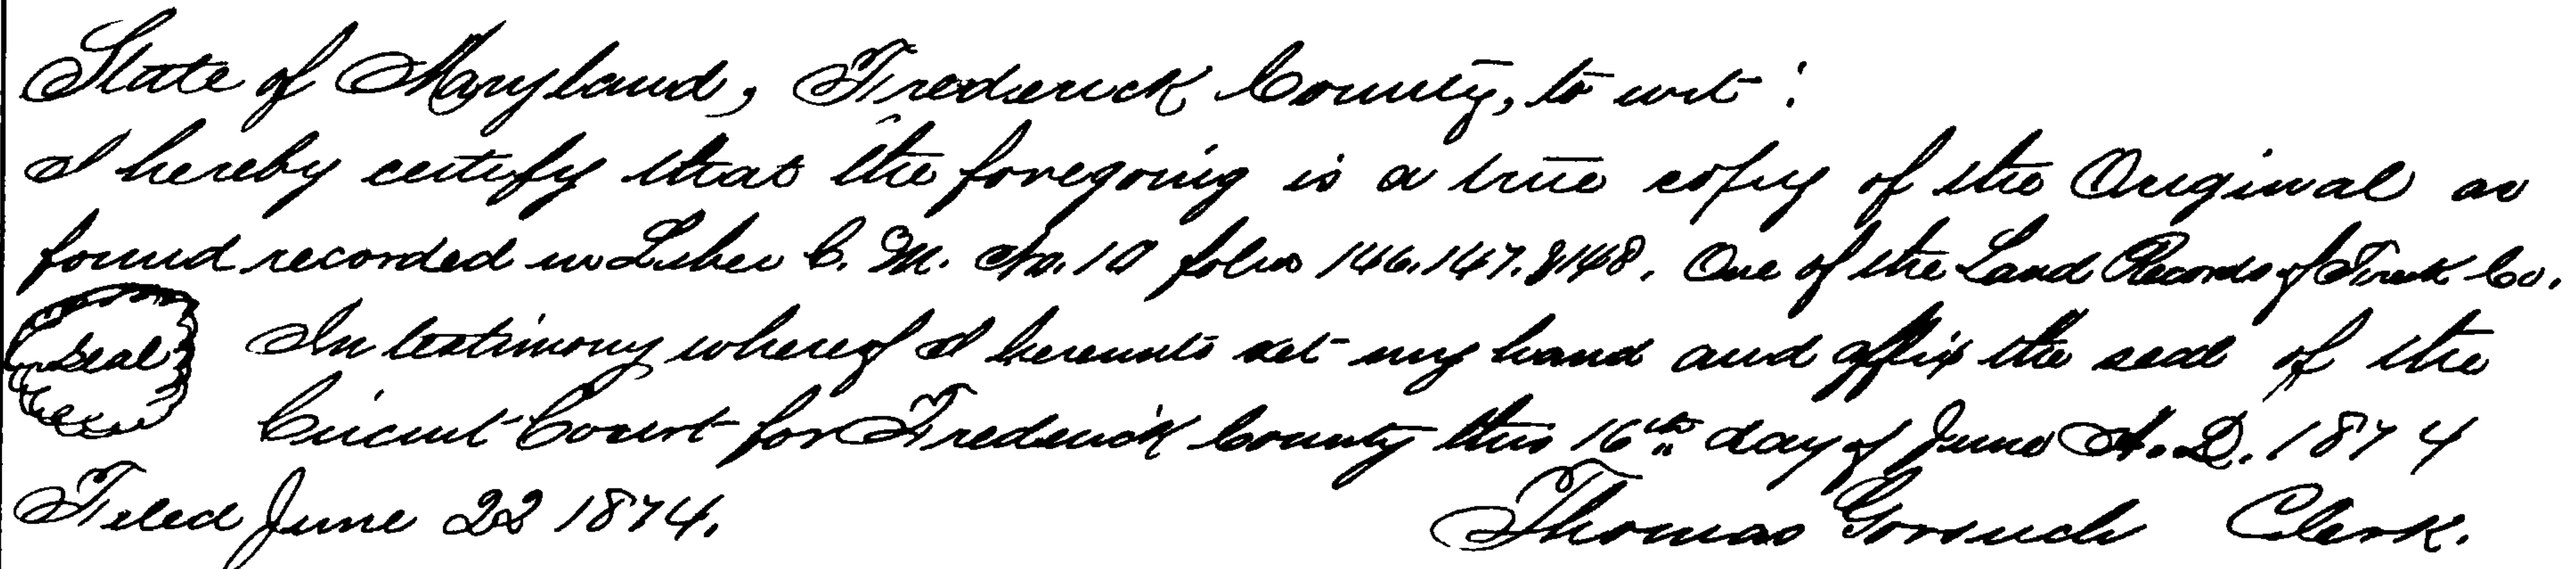 State of Maryland, Frederick County, to wit:
I hereby certify that the foregoing is a true copy of the Original as
found recorded in Liber C. M. No. 10 folios 146.147.&148. One of the Land Records of Fredk Co.
Seal In testimony whereof I hereunto set my hand and affix the seal of the
Circuit Court for Frederick County this 16th day of June A.D. 1874
Filed June 22 1874. Thomas Gorsuch Clerk.